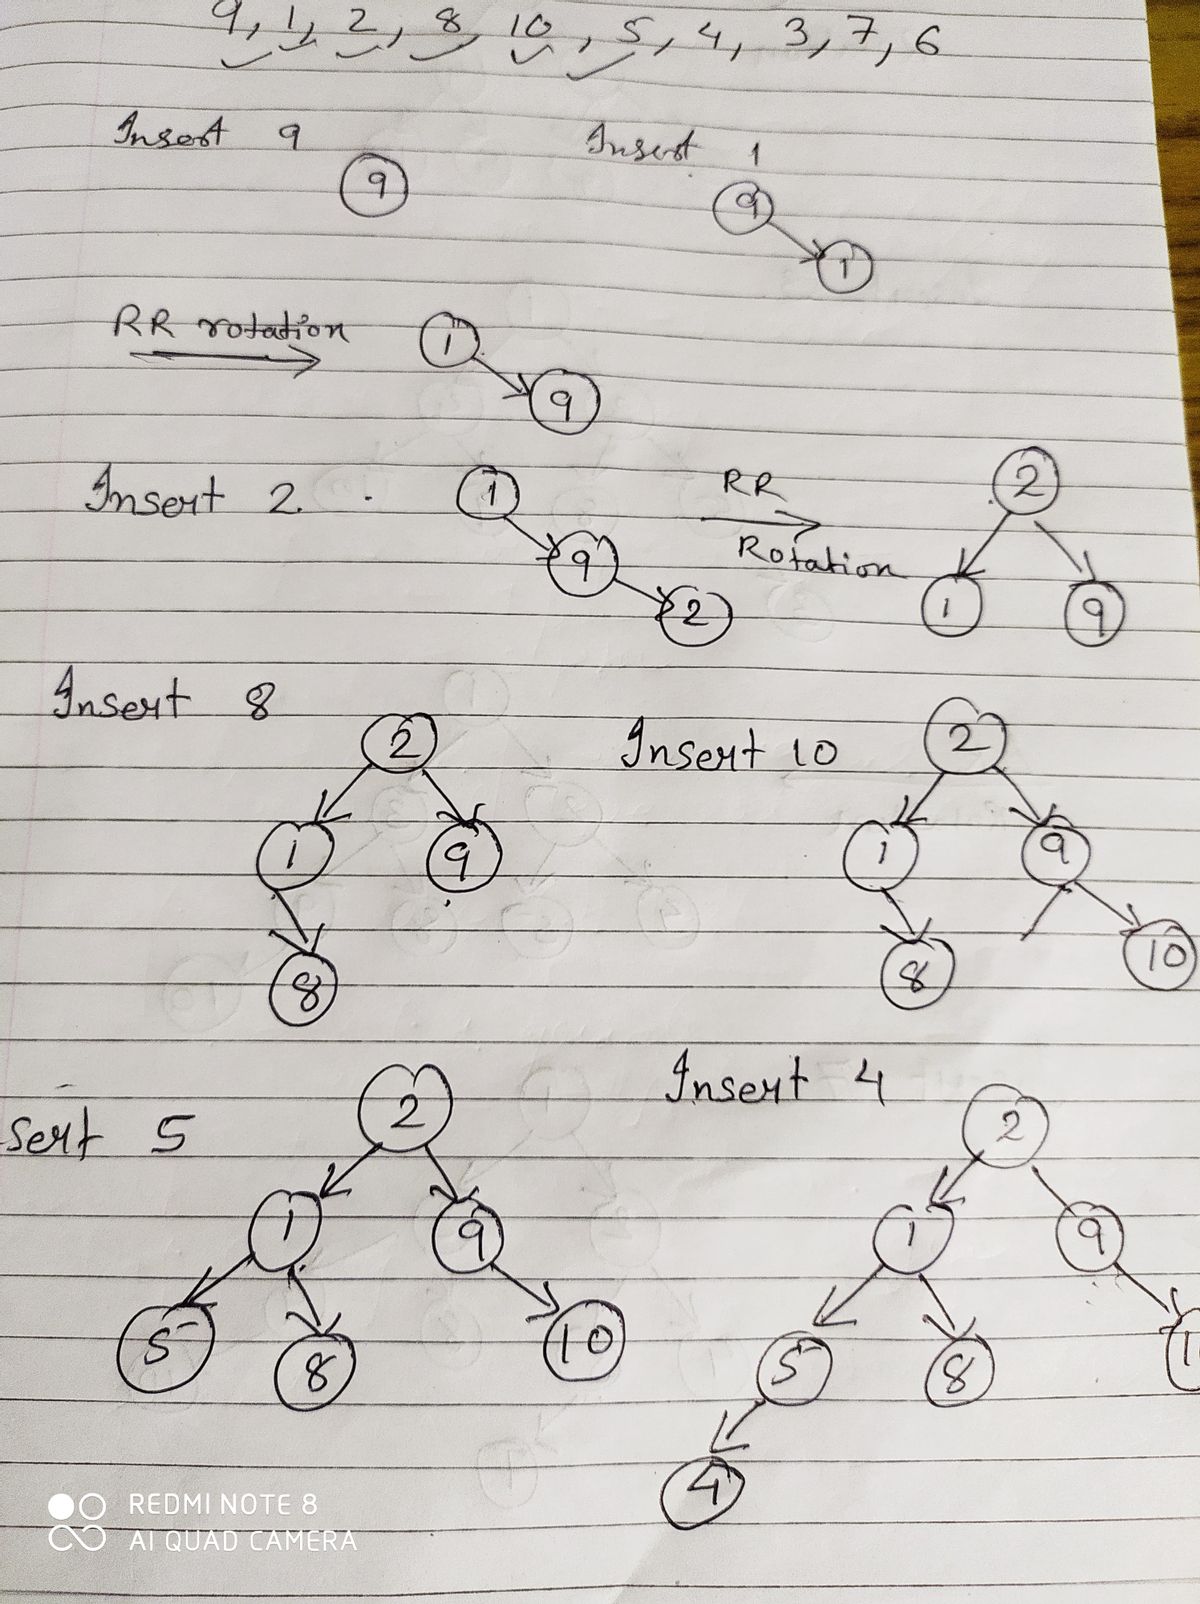 9, 1, 2, 8, 10, 5, 4, 3, 7, 6
Insert 9
9
Insert 1
9
1
RR rotation
1
9
Insert 2.
1
9
2
RR
Rotation
2
1
9
Insert 8
2
1
9
8
Insert 10
2
1
9
8
10
sert 5
2
1
9
5
8
10
Insert 4
2
1
9
5
8
4
REDMI NOTE 8
AI QUAD CAMERA